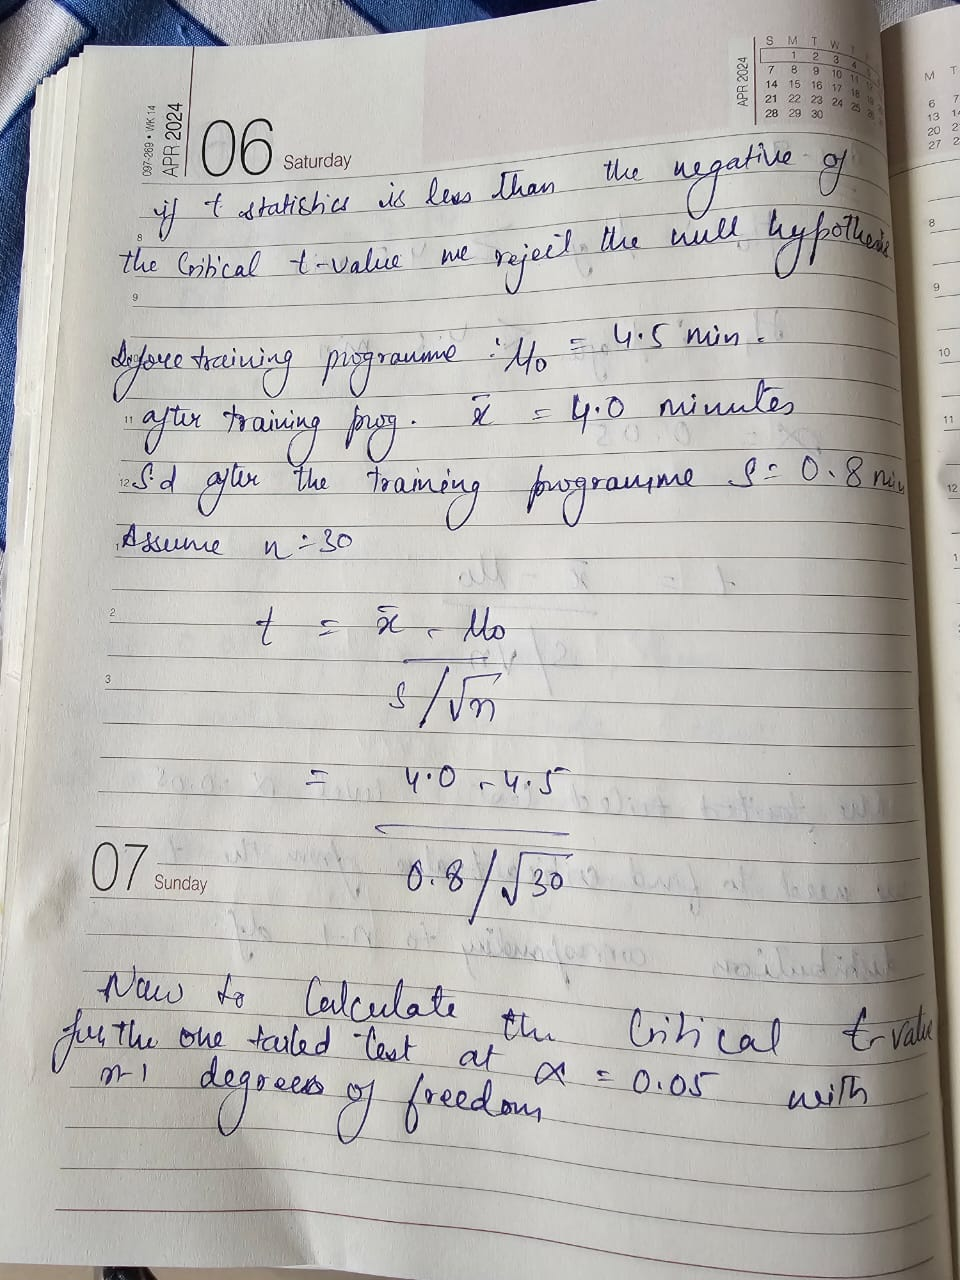 097-269 • WK 14
APR 2024
06 Saturday
APR 2024
S M T W T
1 2 3 4
7 8 9 10 11
14 15 16 17 18
21 22 23 24 25
28 29 30
M T
6 7
13 14
20 21
27 2
if t statistics is less than the negative of
8
the Critical t-value we reject the null hypothesis
9
Before training programme : μ₀ = 4.5 min.
11 after training prog. x̄ = 4.0 minutes
12 S.d after the training programme S = 0.8 min
Assume n = 30
2
t = x̄ - μ₀
3
S/√n
= 4.0 - 4.5
07 Sunday
0.8/√30
Now to Calculate the Critical t-value
for the one tailed test at α = 0.05 with
n-1 degrees of freedom
8
9
10
11
12
1